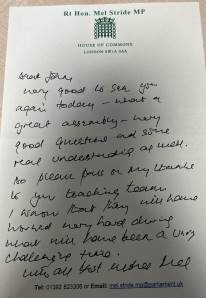 Rt Hon. Mel Stride MP
HOUSE OF COMMONS
LONDON SW1A 0AA
Dear
very good to see you
again today - what a
great assembly - very
good questions and some
real understanding as well.
Do please pass on my thanks
to your teaching team.
I know that they will have
worked very hard during
what will have been a very
challenging time.
with all best wishes Mel
Tel: 01392 823306 or Email: mel.stride.mp@parliament.uk